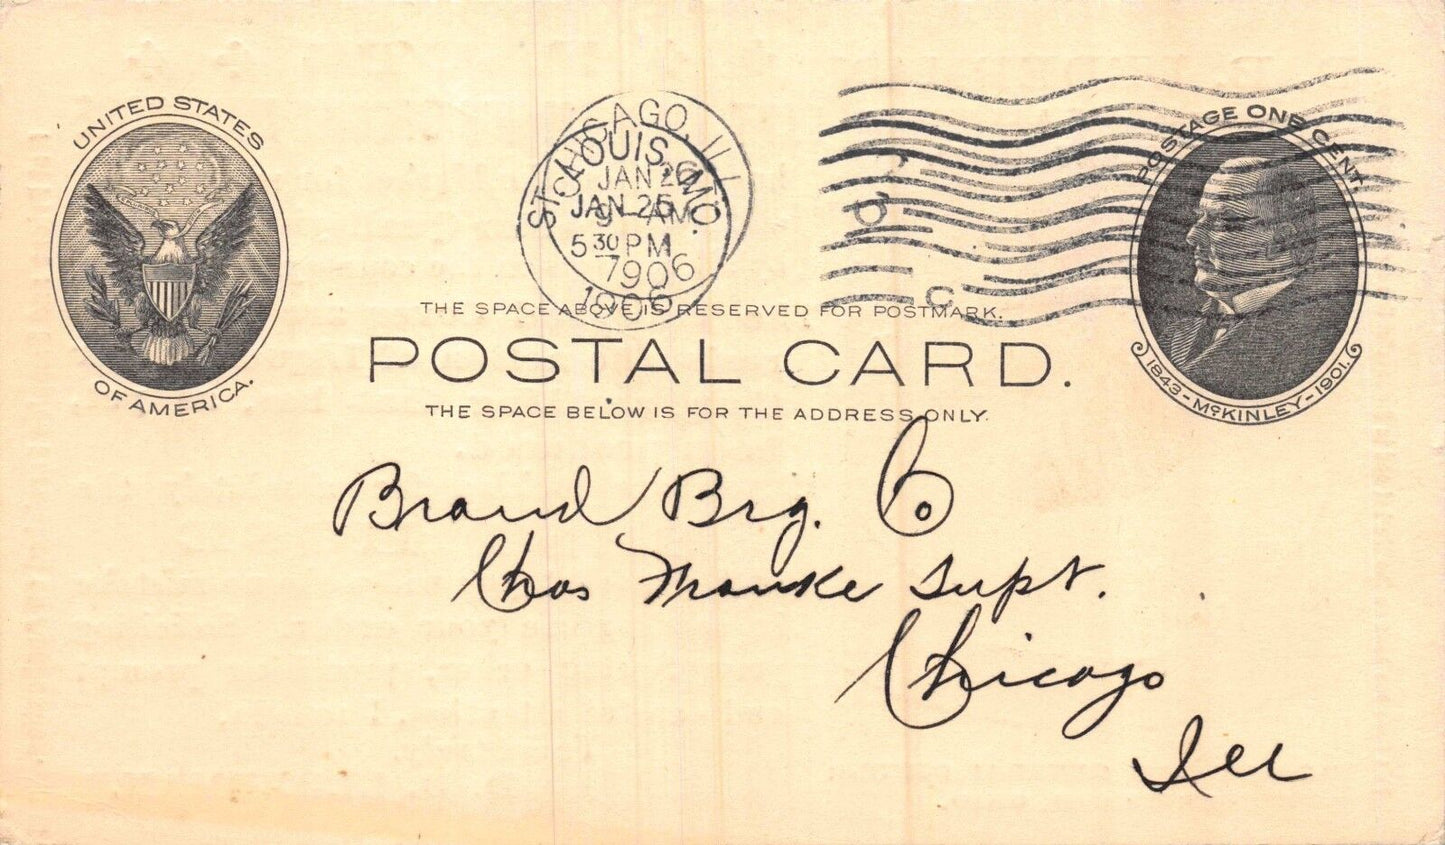 UNITED STATES
OF AMERICA.
CHICAGO, ILL
JAN 26
9 - AM
1906
ST. LOUIS, MO.
JAN 25
5 30 PM
1906
POSTAGE ONE CENT
1843 - McKINLEY - 1901.
THE SPACE ABOVE IS RESERVED FOR POSTMARK.
POSTAL CARD.
THE SPACE BELOW IS FOR THE ADDRESS ONLY.
Brand Brg. Co
Chas Manke Supt.
Chicago
Ill